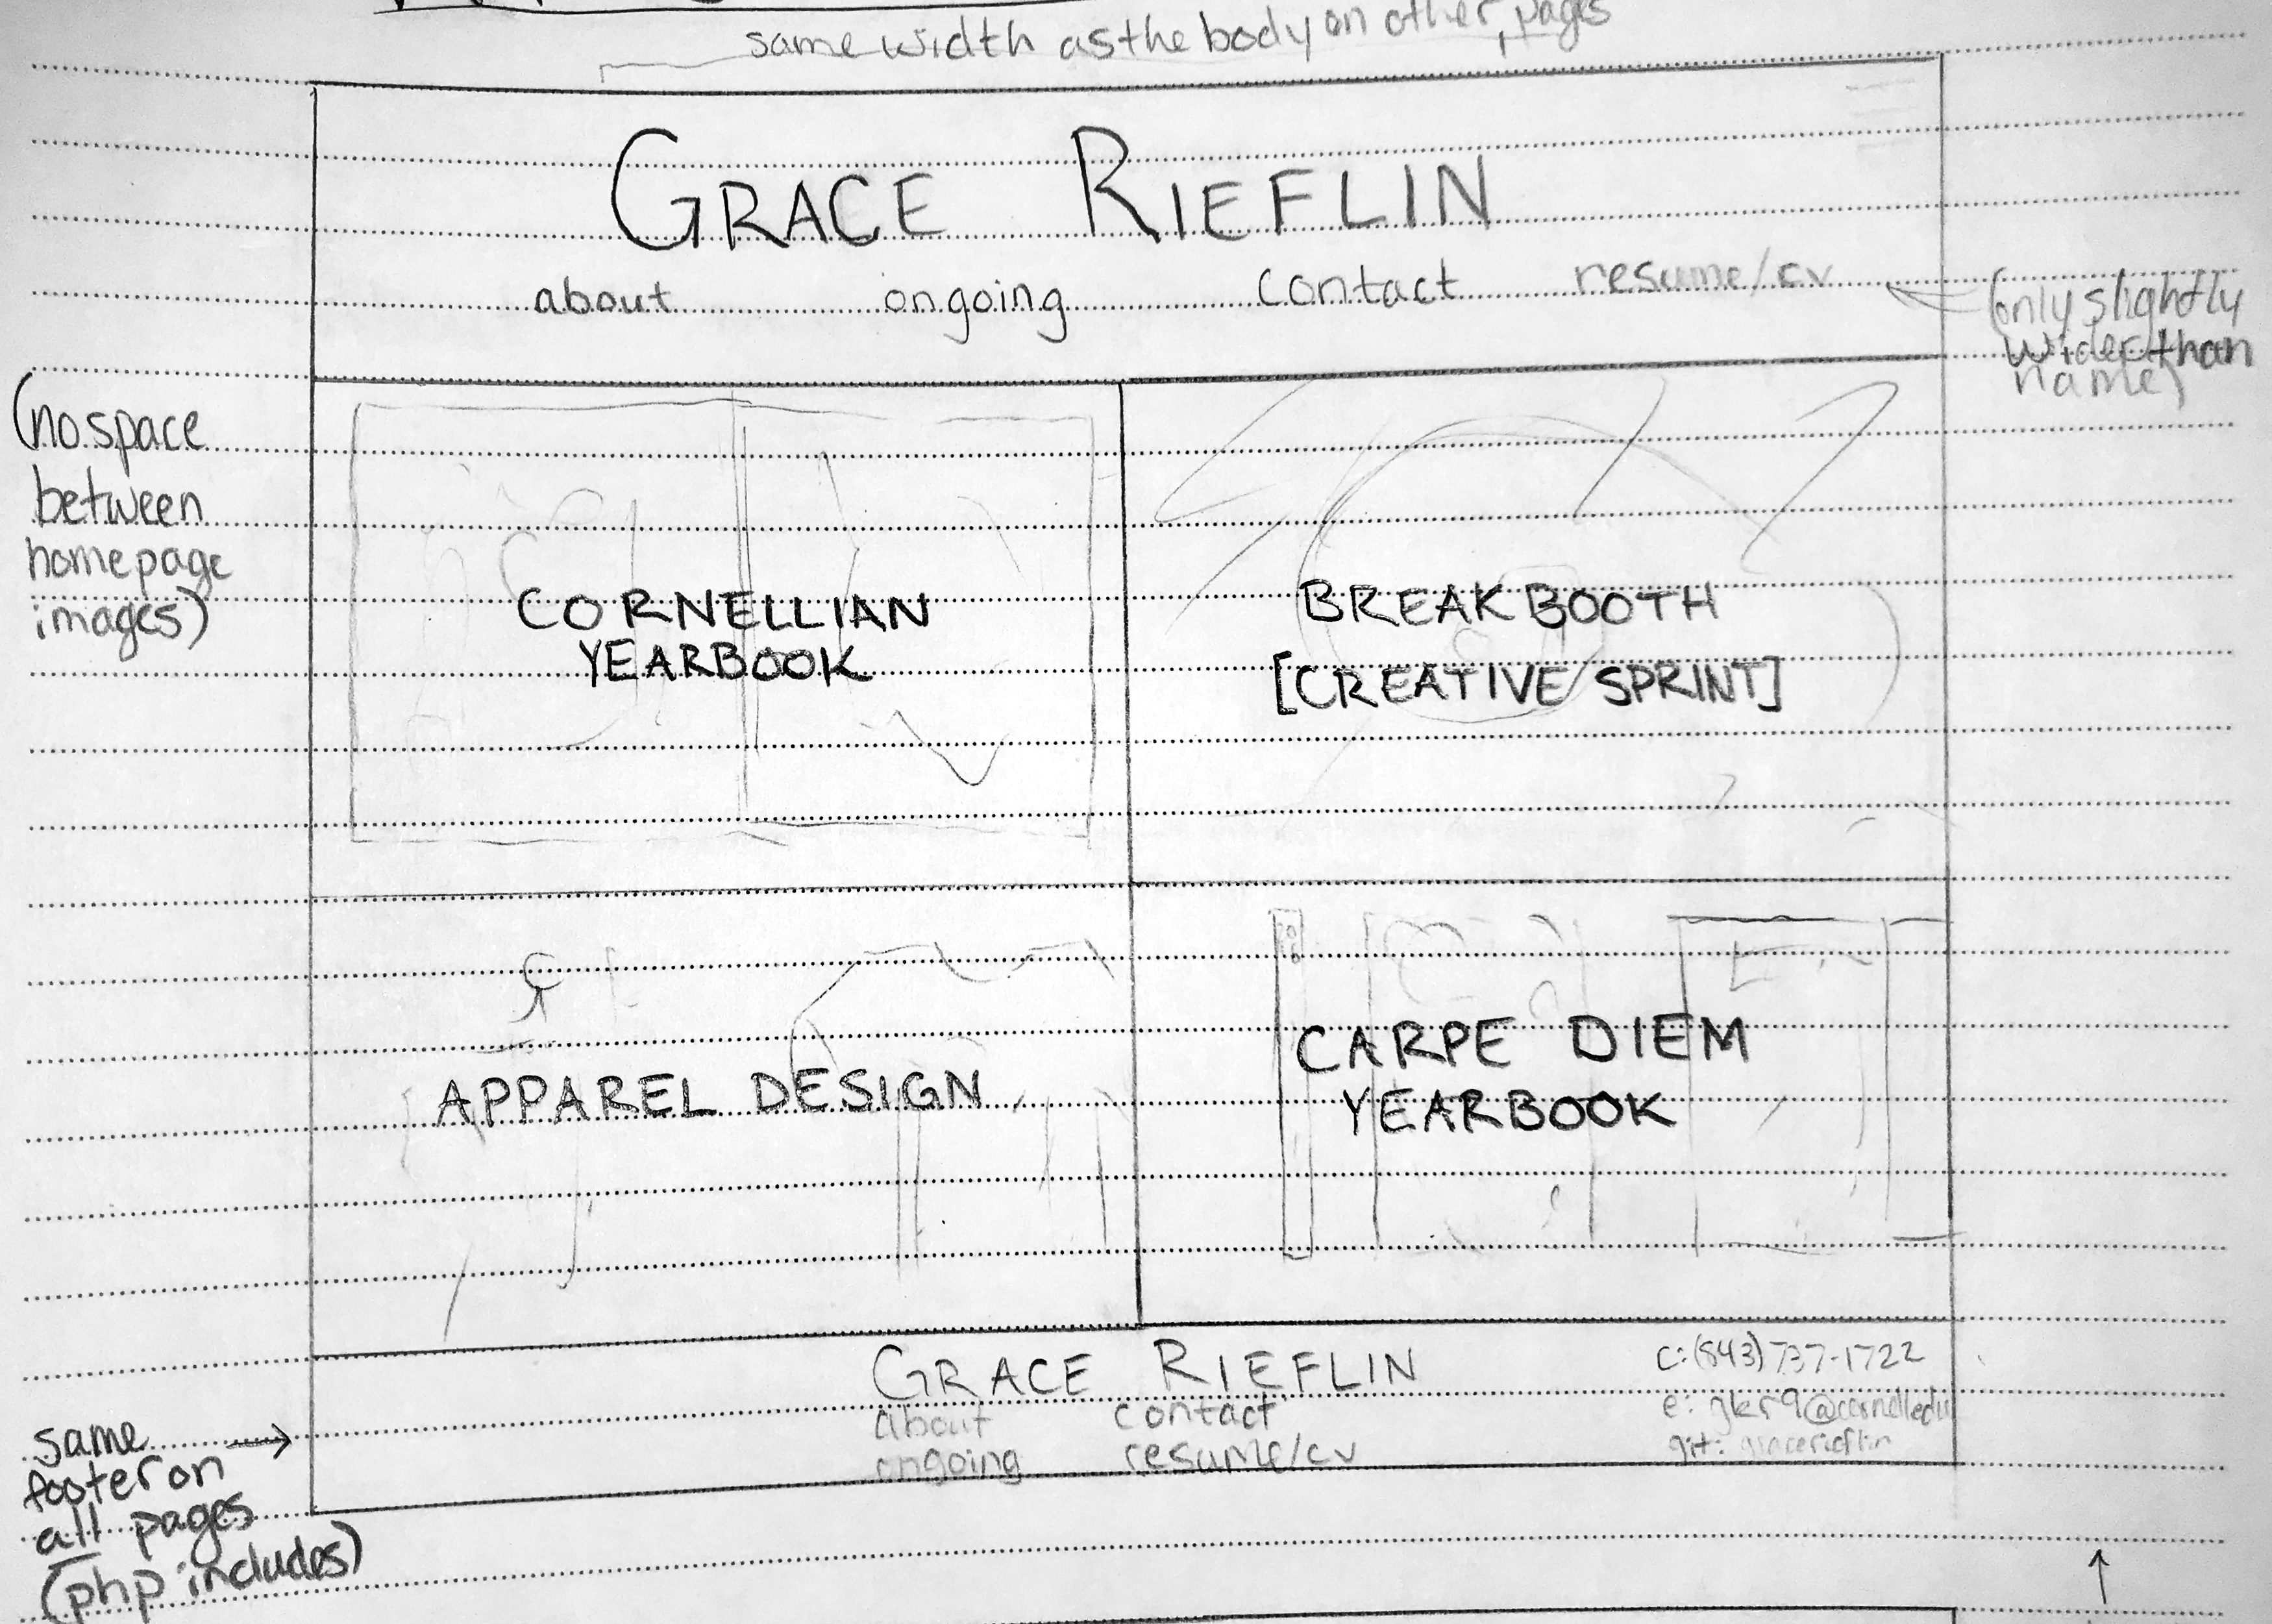 same width as the body on other pages
GRACE RIEFLIN
about ongoing contact resume/cv
(only slightly
wider than
name)
(no space
between
homepage
images)
CORNELLIAN
YEARBOOK
BREAK BOOTH
[CREATIVE SPRINT]
APPAREL DESIGN
CARPE DIEM
YEARBOOK
GRACE RIEFLIN
about contact
ongoing resume/cv
c: (843) 737-1722
e: gkr9@cornell.edu
git: gracerieflin
same
footer on
all pages
(php includes)